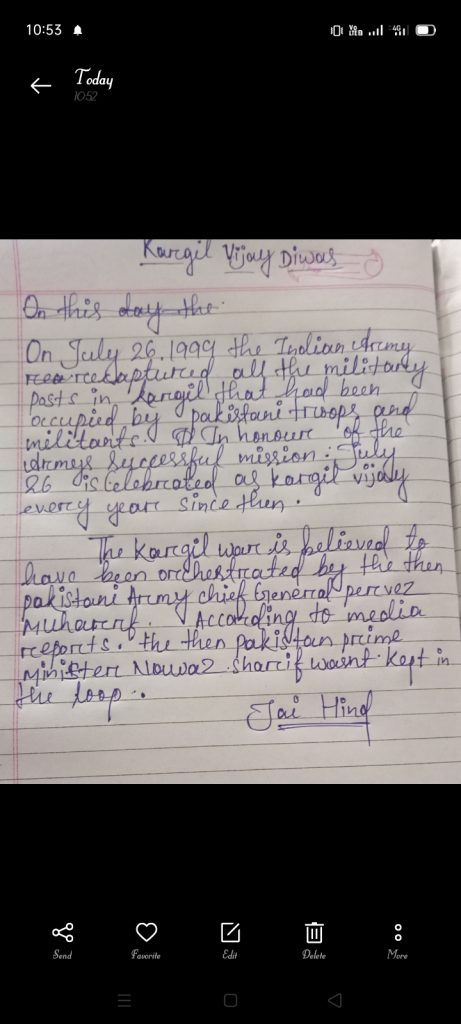 10:53
Vo LTE 4G
Today
10:52
Kargil Vijay Diwas
On this day the
On July 26, 1999 the Indian Army
recaptured all the military
posts in Kargil that had been
occupied by pakistani troops and
militants. In honour of the
Army's Successful mission: July
26 is Celebrated as kargil vijay
every year since then.
The Kargil war is believed to
have been orchestrated by the then
pakistani Army chief General pervez
Muharrf. According to media
reports. the then pakistan prime
Minister Nawaz sharif wasnt kept in
the loop..
Jai Hind
Send Favorite Edit Delete More